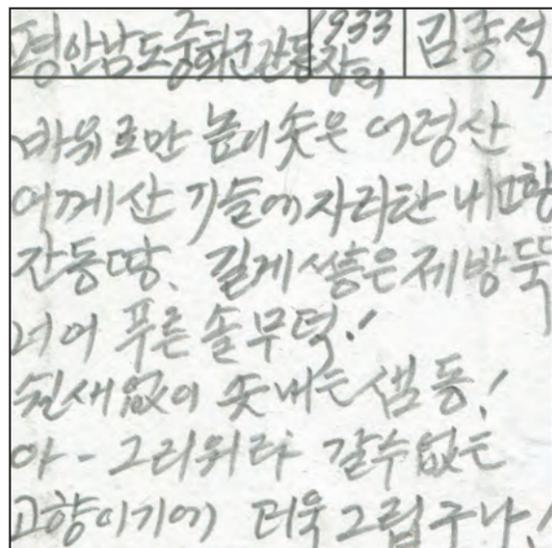 평안남도 중화군 간동장리 1933 김종석
바위로만 높이 솟은 어령산
어께산 기슬에 자리한 내고향
간동땅. 길게 써흥은 제방둑
너어 푸른 솔무덕!
쉴새없이 솟내는 샘동!
아 - 그리워라 갈수없는
고향이기에 더욱 그립구나!